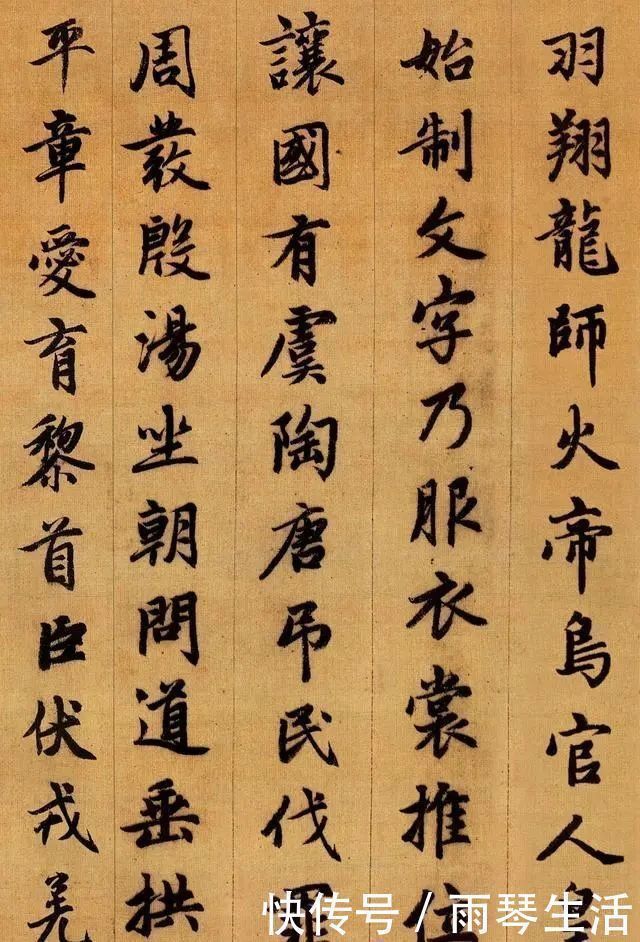 羽翔龍師火帝鳥官人皇
始制文字乃服衣裳推位
讓國有虞陶唐吊民伐罪
周發殷湯坐朝問道垂拱
平章愛育黎首臣伏戎羌
快传号 / 雨琴生活